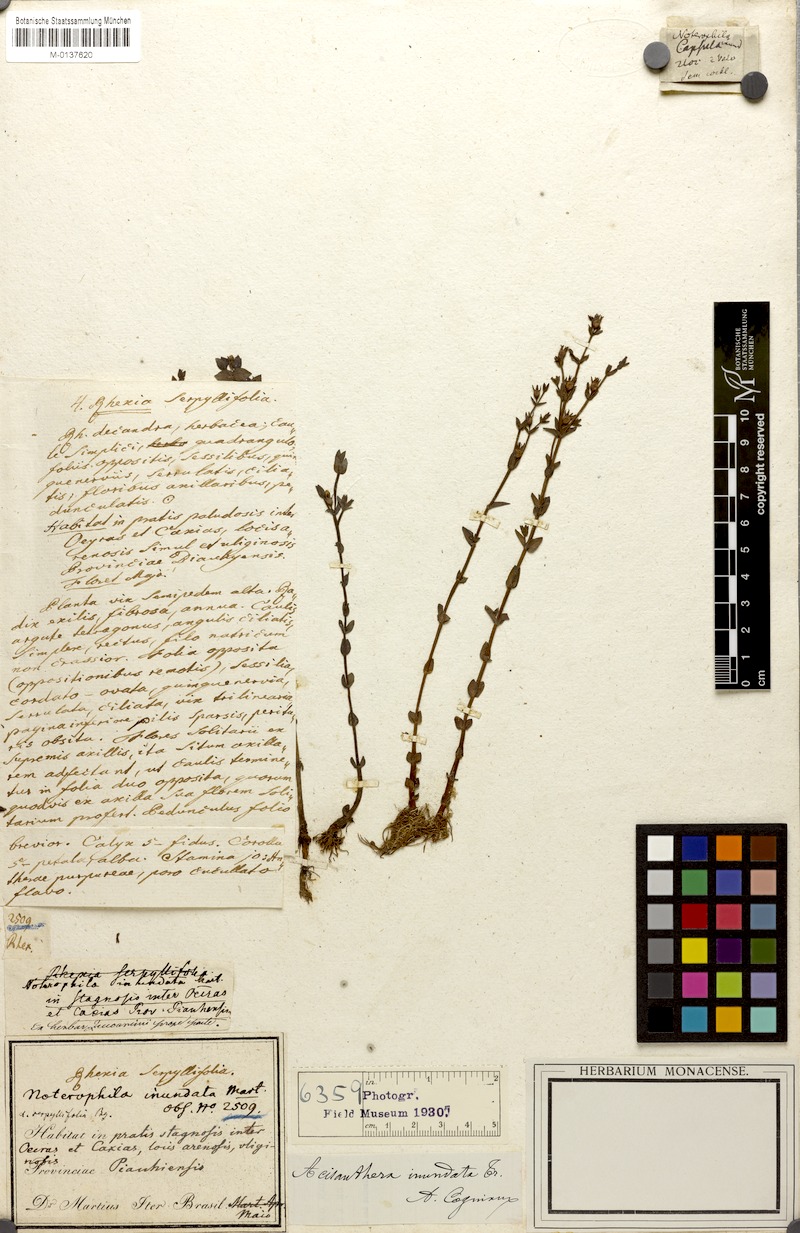 Botanische Staatssammlung München
M-0137620
Noterophila
Capsula
Nov
4. Rhexia Serpyllifolia.
Rh. decandra, herbacea; cau-
le simplici, quadrangulo
foliis oppositis, sessilibus, quin
quenerviis, serrulatis, cilia-
tis, floribus axillaribus, pe-
dunculatis. ⊙
Habitat in pratis paludosis inter
Oeyras et Caxias, locis a-
renosis simul et uliginosis
Provinciae Piauhyensis.
Floret Majo.
Planta vix semipedem alta. Ra-
dix exilis, fibrosa, annua. Caulis
argute tetragonus, angulis ciliatis,
simplex, rectus, filo
non crassior. Folia opposita
(oppositionibus remotis), sessilia,
cordato-ovata, quinquenervia,
serrulata, ciliata, vix trilinearia
pagina inferiore pilis sparsis,
obsita. Flores solitarii ex
supremis axillis, ita situm axilla-
rem adfectant, ut caulis termine-
tur in folia duo opposita, quorum
quodvis ex axilla sua florem soli-
tarium profert. Pedunculus folio
brevior. Calyx 5-fidus. Corolla
5-petala, alba. Stamina 10: An-
therae purpureae, poro cucullato
flavo.
2509
Rhex.
Rhexia serpyllifolia
Noterophila inundata Mart.
in stagnosis inter Oeiras
et Caxias Prov. Piauhensis
Rhexia Serpyllifolia.
Noterophila inundata Mart.
Obs. No 2509.
Habitat in pratis stagnosis inter
Oeiras et Caxias, locis arenosis, uligi-
nosis
Provinciae Piauhiensis
Dr Martius Iter Brasil. Mart. Apr.
Maio
6359
Photogr.
Field Museum 1930?
in. 1 2
cm. 1 2 3 4 5
Acisanthera inundata Tr.
A. Cogniaux
HERBARIUM MONACENSE.
BOTANISCHE
STAATSSAMMLUNG
MÜNCHEN
0 1 2 3 4 5 6 7 8 9 10
cm
copyright reserved